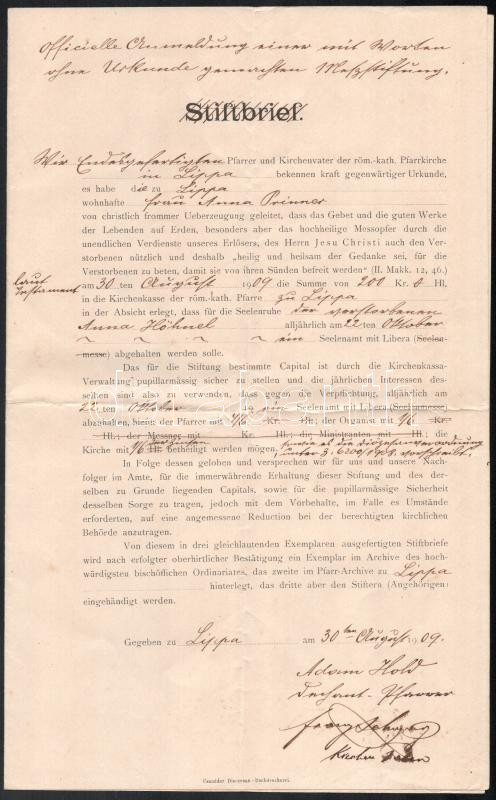 Officielle Anmeldung einer mit Worten
ohne Urkunde gemachten Meßstiftung.
Stiftbrief.
Wir Endesgefertigten Pfarrer und Kirchenvater der röm.-kath. Pfarrkirche
in Lippa bekennen kraft gegenwärtiger Urkunde,
es habe die zu Lippa
wohnhafte Frau Anna Prinner
von christlich frommer Ueberzeugung geleitet, dass das Gebet und die guten Werke
der Lebenden auf Erden, besonders aber das hochheilige Messopfer durch die
unendlichen Verdienste unseres Erlösers, des Herrn Jesu Christi auch den Ver-
storbenen nützlich und deshalb „heilig und heilsam der Gedanke sei, für die
Verstorbenen zu beten, damit sie von ihren Sünden befreit werden“ (II. Makk. 12, 46.)
laut Testament
am 30ten August 1909 die Summe von 200 Kr. 0 Hl,
in die Kirchenkasse der röm.-kath. Pfarre zu Lippa
in der Absicht erlegt, dass für die Seelenruhe der verstorbenen
Anna Höhnel alljährlich am 22ten Oktober
ein Seelenamt mit Libera (Seelen-
messe) abgehalten werden solle.
Das für die Stiftung bestimmte Capital ist durch die Kirchenkassa-
Verwaltung pupillarmässig sicher zu stellen und die jährlichen Interessen des-
selben sind also zu verwenden, dass gegen die Verpflichtung, alljährlich am
22ten Oktober ein Seelenamt mit Libera (Seelenmesse)
abzuhalten, hiefür der Pfarrer mit 4/6 Kr. Hl.; der Organist mit 1/6 Kr.
Hl.; der Messner mit Kr. Hl.; die Ministranten mit Hl.; die
Kirche mit 1/6 Hl. betheiligt werden mögen, sowie es die Diözesanverordnung
unter Z. 6200/1908. vorschreibt.
In Folge dessen geloben und versprechen wir für uns und unsere Nach-
folger im Amte, für die immerwährende Erhaltung dieser Stiftung und des der-
selben zu Grunde liegenden Capitals, sowie für die pupillarmässige Sicherheit
desselben Sorge zu tragen, jedoch mit dem Vorbehalte, im Falle es Umstände
erforderten, auf eine angemessene Reduction bei der berechtigten kirchlichen
Behörde anzutragen.
Von diesem in drei gleichlautenden Exemplaren ausgefertigten Stiftbriefe
wird nach erfolgter oberhirtlicher Bestätigung ein Exemplar im Archive des hoch-
würdigsten bischöflichen Ordinariates, das zweite im Pfarr-Archive zu Lippa
hinterlegt, das dritte aber den Stiftern (Angehörigen)
eingehändigt werden.
Gegeben zu Lippa am 30ten August 1909.
Adam Hold
Dechant-Pfarrer
Kirchen
Csanáder Diocesan-Buchdruckerei.